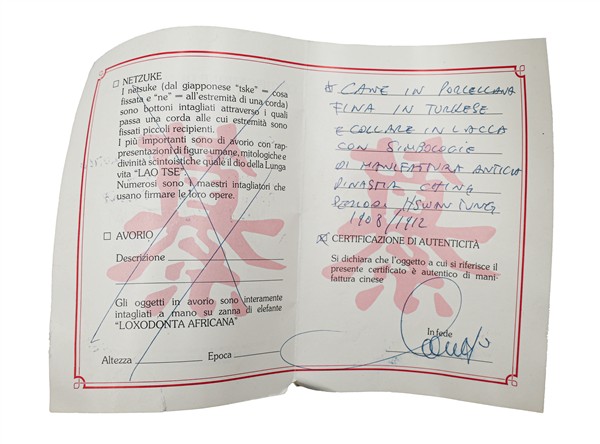 □ NETZUKE
I netsuke (dal giapponese "tske" = cosa
fissata e "ne" = all'estremità di una corda)
sono bottoni intagliati attraverso i quali
passa una corda alle cui estremità sono
fissati piccoli recipienti.
I più importanti sono di avorio con rap-
presentazioni di figure umane, mitologiche e
divinità scintoistiche quale il dio della Lunga
vita "LAO TSE".
Numerosi sono i maestri intagliatori che
usano firmare le loro opere.
□ AVORIO
Descrizione
Gli oggetti in avorio sono interamente
intagliati a mano su zanna di elefante
"LOXODONTA AFRICANA"
Altezza Epoca
CANE IN PORCELLANA
FINA IN TURKESE
E COLLARE IN LACCA
CON SIMBOLOGIE
DI MANIFATTURA ANTICA
DINASTIA CHING
PERIODO HSWAN TUNG
1908/1912
CERTIFICAZIONE DI AUTENTICITÀ
Si dichiara che l'oggetto a cui si riferisce il
presente certificato è autentico di mani-
fattura cinese
In fede